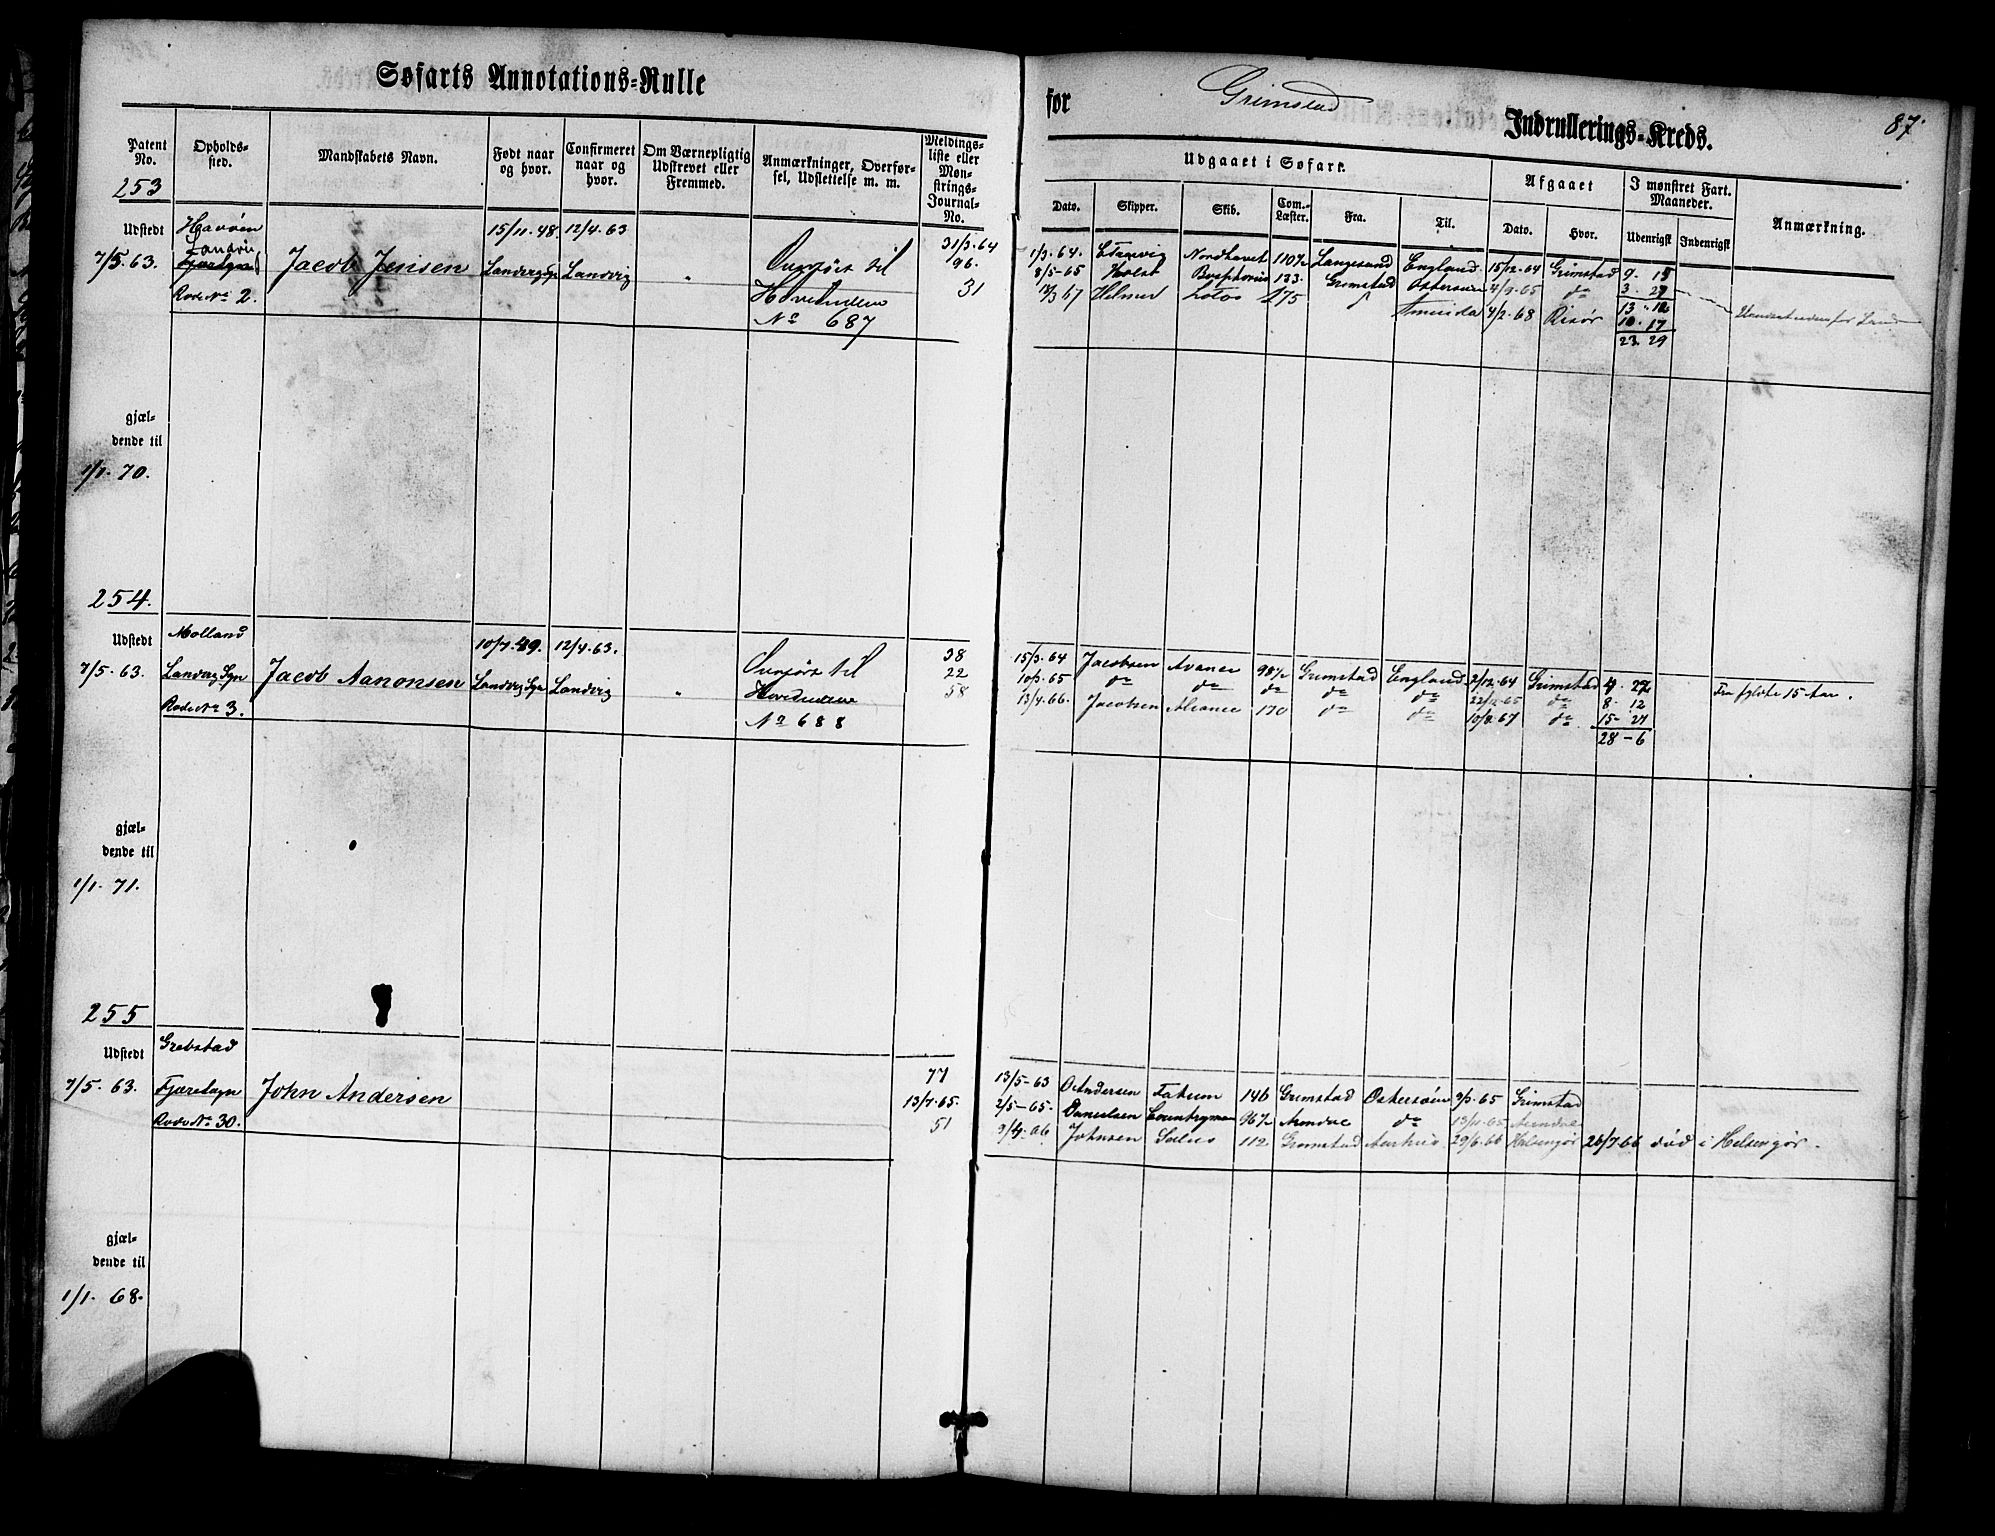 Søfarts Annotations-Rulle
for Grimstad Indrullerings-Kreds.
87.
Patent No.
Opholds-sted.
Mandskabets Navn.
Født naar og hvor.
Confirmeret naar og hvor.
Om Værnepligtig Udskrevet eller Fremmed.
Anmærkninger, Overførsel, Udslettelse m. m.
Meldings-liste eller Mønstrings-Journal-No.
Udgaaet i Søfart.
Afgaaet
I mønstret Fart. Maaneder.
Anmærkning.
Dato.
Skipper.
Skib.
Com.-Læster.
Fra.
Til.
Dato.
Hvor.
Udenrigsk
Indenrigsk
253
Udstedt
7/5. 63.
Havøen
Landvig
Fjæresogn
Rode No 2.
Jacob Jensen
15/11. 48.
Landvig Sgn
12/4. 63
Landvig
"
Overført til
Hovedrullen
No 687
31/3. 64
96.
31
1/3. 64. Nordhavet 110½ Langesund England 15/12. 64 Grimstad 9. 15
8/5-65 Holst Bosphorus 133. Grimstad Østersøen 4/9. 65 do 3. 27
67 Helmer 175 4/2. 68 Risør
13. 12
10. 17
23. 29
gjæl-
dende til
1/1. 70.
254.
Udstedt
7/5. 63.
Molland
Landvig Sgn
Rode No 3.
Jacob Aanonsen
10/7. 49.
Landvig Sgn
12/4. 63.
Landvig
"
Overført til
Hovedrullen
No 688
38
22
58
15/3. 64 Jacobsen 98½ Grimstad England 2/12. 64 Grimstad 4. 27
10/3. 65 do do do do do 22/12. 65 do 8. 12
13/4. 66. Jacobsen 170 do do 10/8. 67 do 15- 27
28-6
gjæl-
dende til
1/1. 71.
255
Udstedt
7/5. 63.
Grebstad
Fjæresogn
Rode No 30.
John Andersen
77
13/7. 65.
51
13/5-63 O Andersen Fatum 146 Grimstad Østersøen 9/3. 65 Grimstad
2/5-65. Danielsen Countryman 96½ Arendal do 13/11. 65 Arendal
9/4. 66 Johnsen 112 Grimstad Aarhus 29/6. 66 Helsingør 26/7. 66 død i Helsingør.
gjæl-
dende til
1/1. 68.